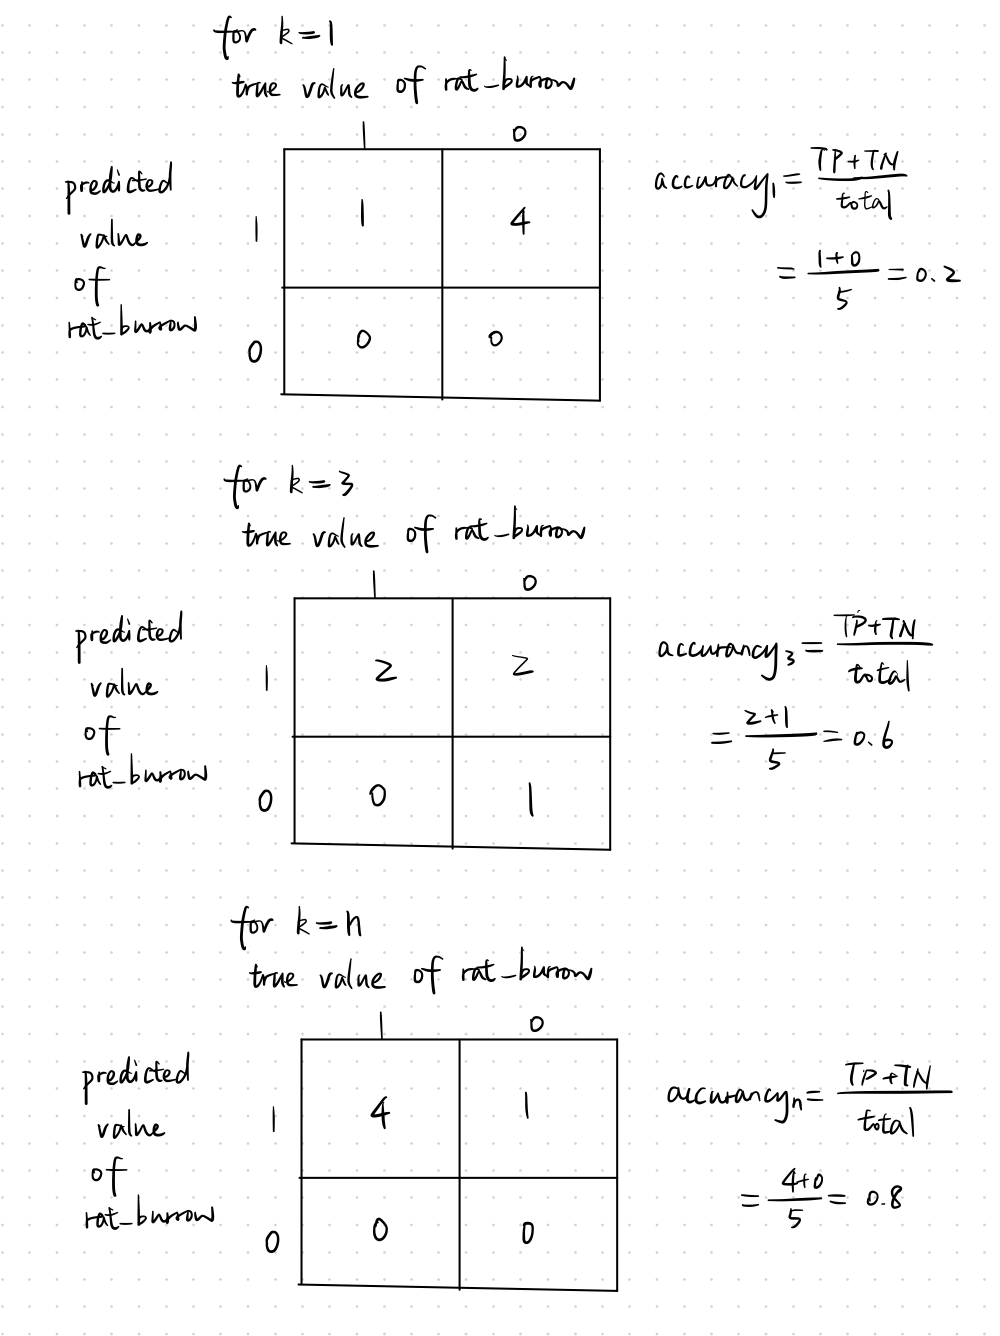 for k=1
true value of rat_burrow
1 0
predicted value of rat_burrow
1 1 4
0 0 0
accuracy₁ = TP+TN / total
= 1+0 / 5 = 0.2
for k=3
true value of rat_burrow
1 0
predicted value of rat_burrow
1 2 2
0 0 1
accurancy₃ = TP+TN / total
= 2+1 / 5 = 0.6
for k=n
true value of rat_burrow
1 0
predicted value of rat_burrow
1 4 1
0 0 0
accurancyₙ = TP+TN / total
= 4+0 / 5 = 0.8